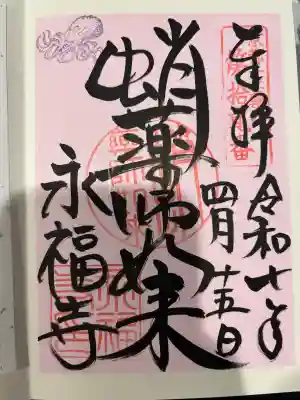 奉拝
令和七年
四月十五日
蛸薬師如来
永福寺